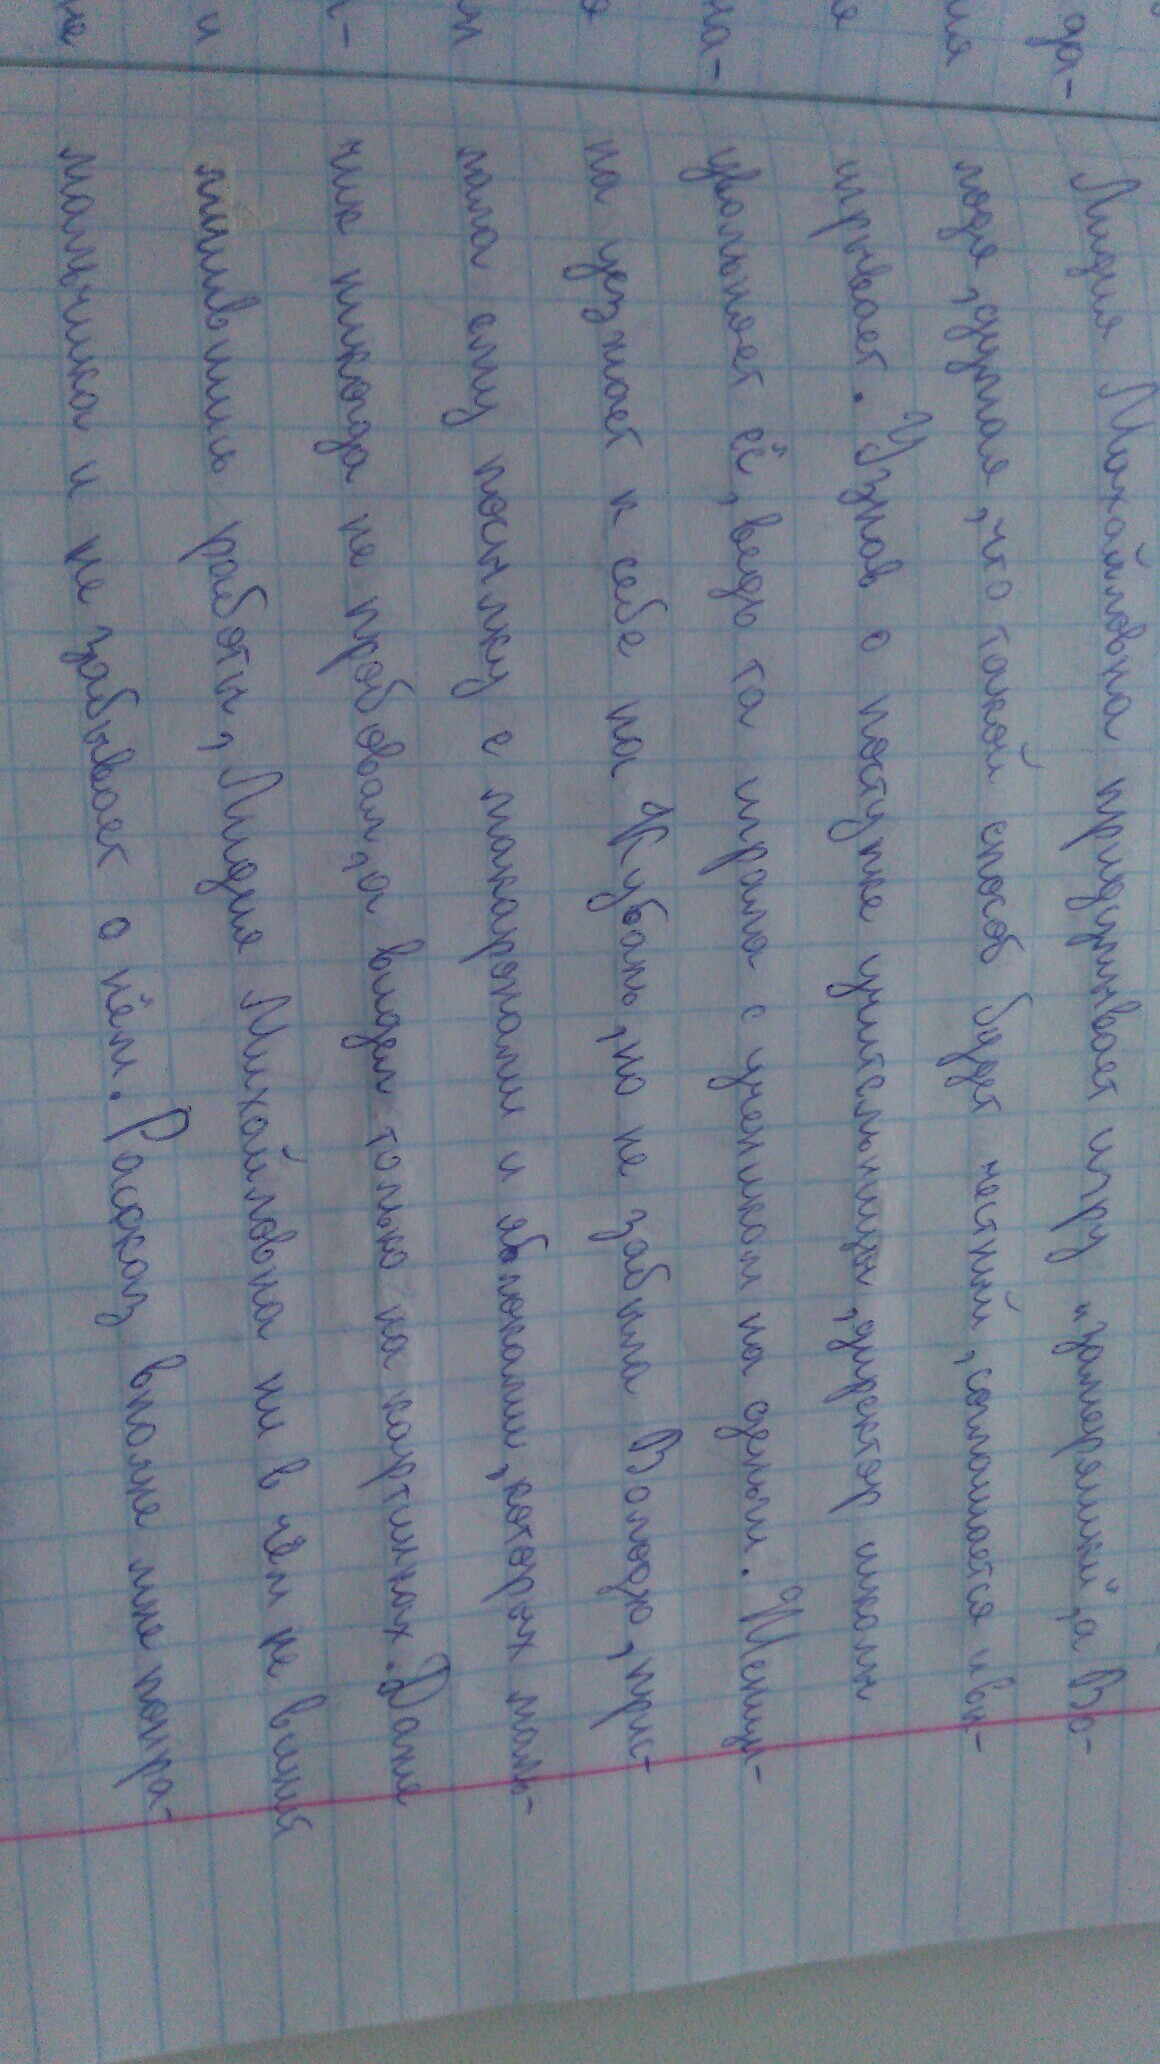 Лидия Михайловна придумывает игру „замеряшки", а Во-
лодя, думая, что такой способ будет честный, соглашается и вы-
игрывает. Узнав о поступке учительницы, директор школы
увольняет её, ведь та играла с учеником на деньги. Женщи-
на уезжает к себе на Кубань, но не забыла Володю, при-
лала ему посылку с макаронами и яблоками, которых маль-
чик никогда не пробовал, а видел только на картинках. Даже
лишившись работы, Лидия Михайловна ни в чём не винит
мальчика и не забывает о нём. Рассказ вполне мне понра-
да-
ия
е
на-
о
н
и
не